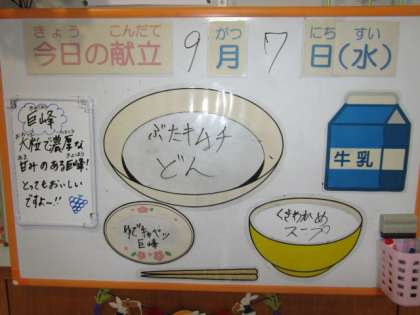 きょう こんだて
今日の献立 9月7日(水)
がつ にち すい
巨峰
大粒で濃厚な
甘みのある巨峰!
とってもおいしい
ですよ~!!
ぶたキムチ
どん
牛乳
ゆでキャベツ
巨峰
くきわかめ
スープ